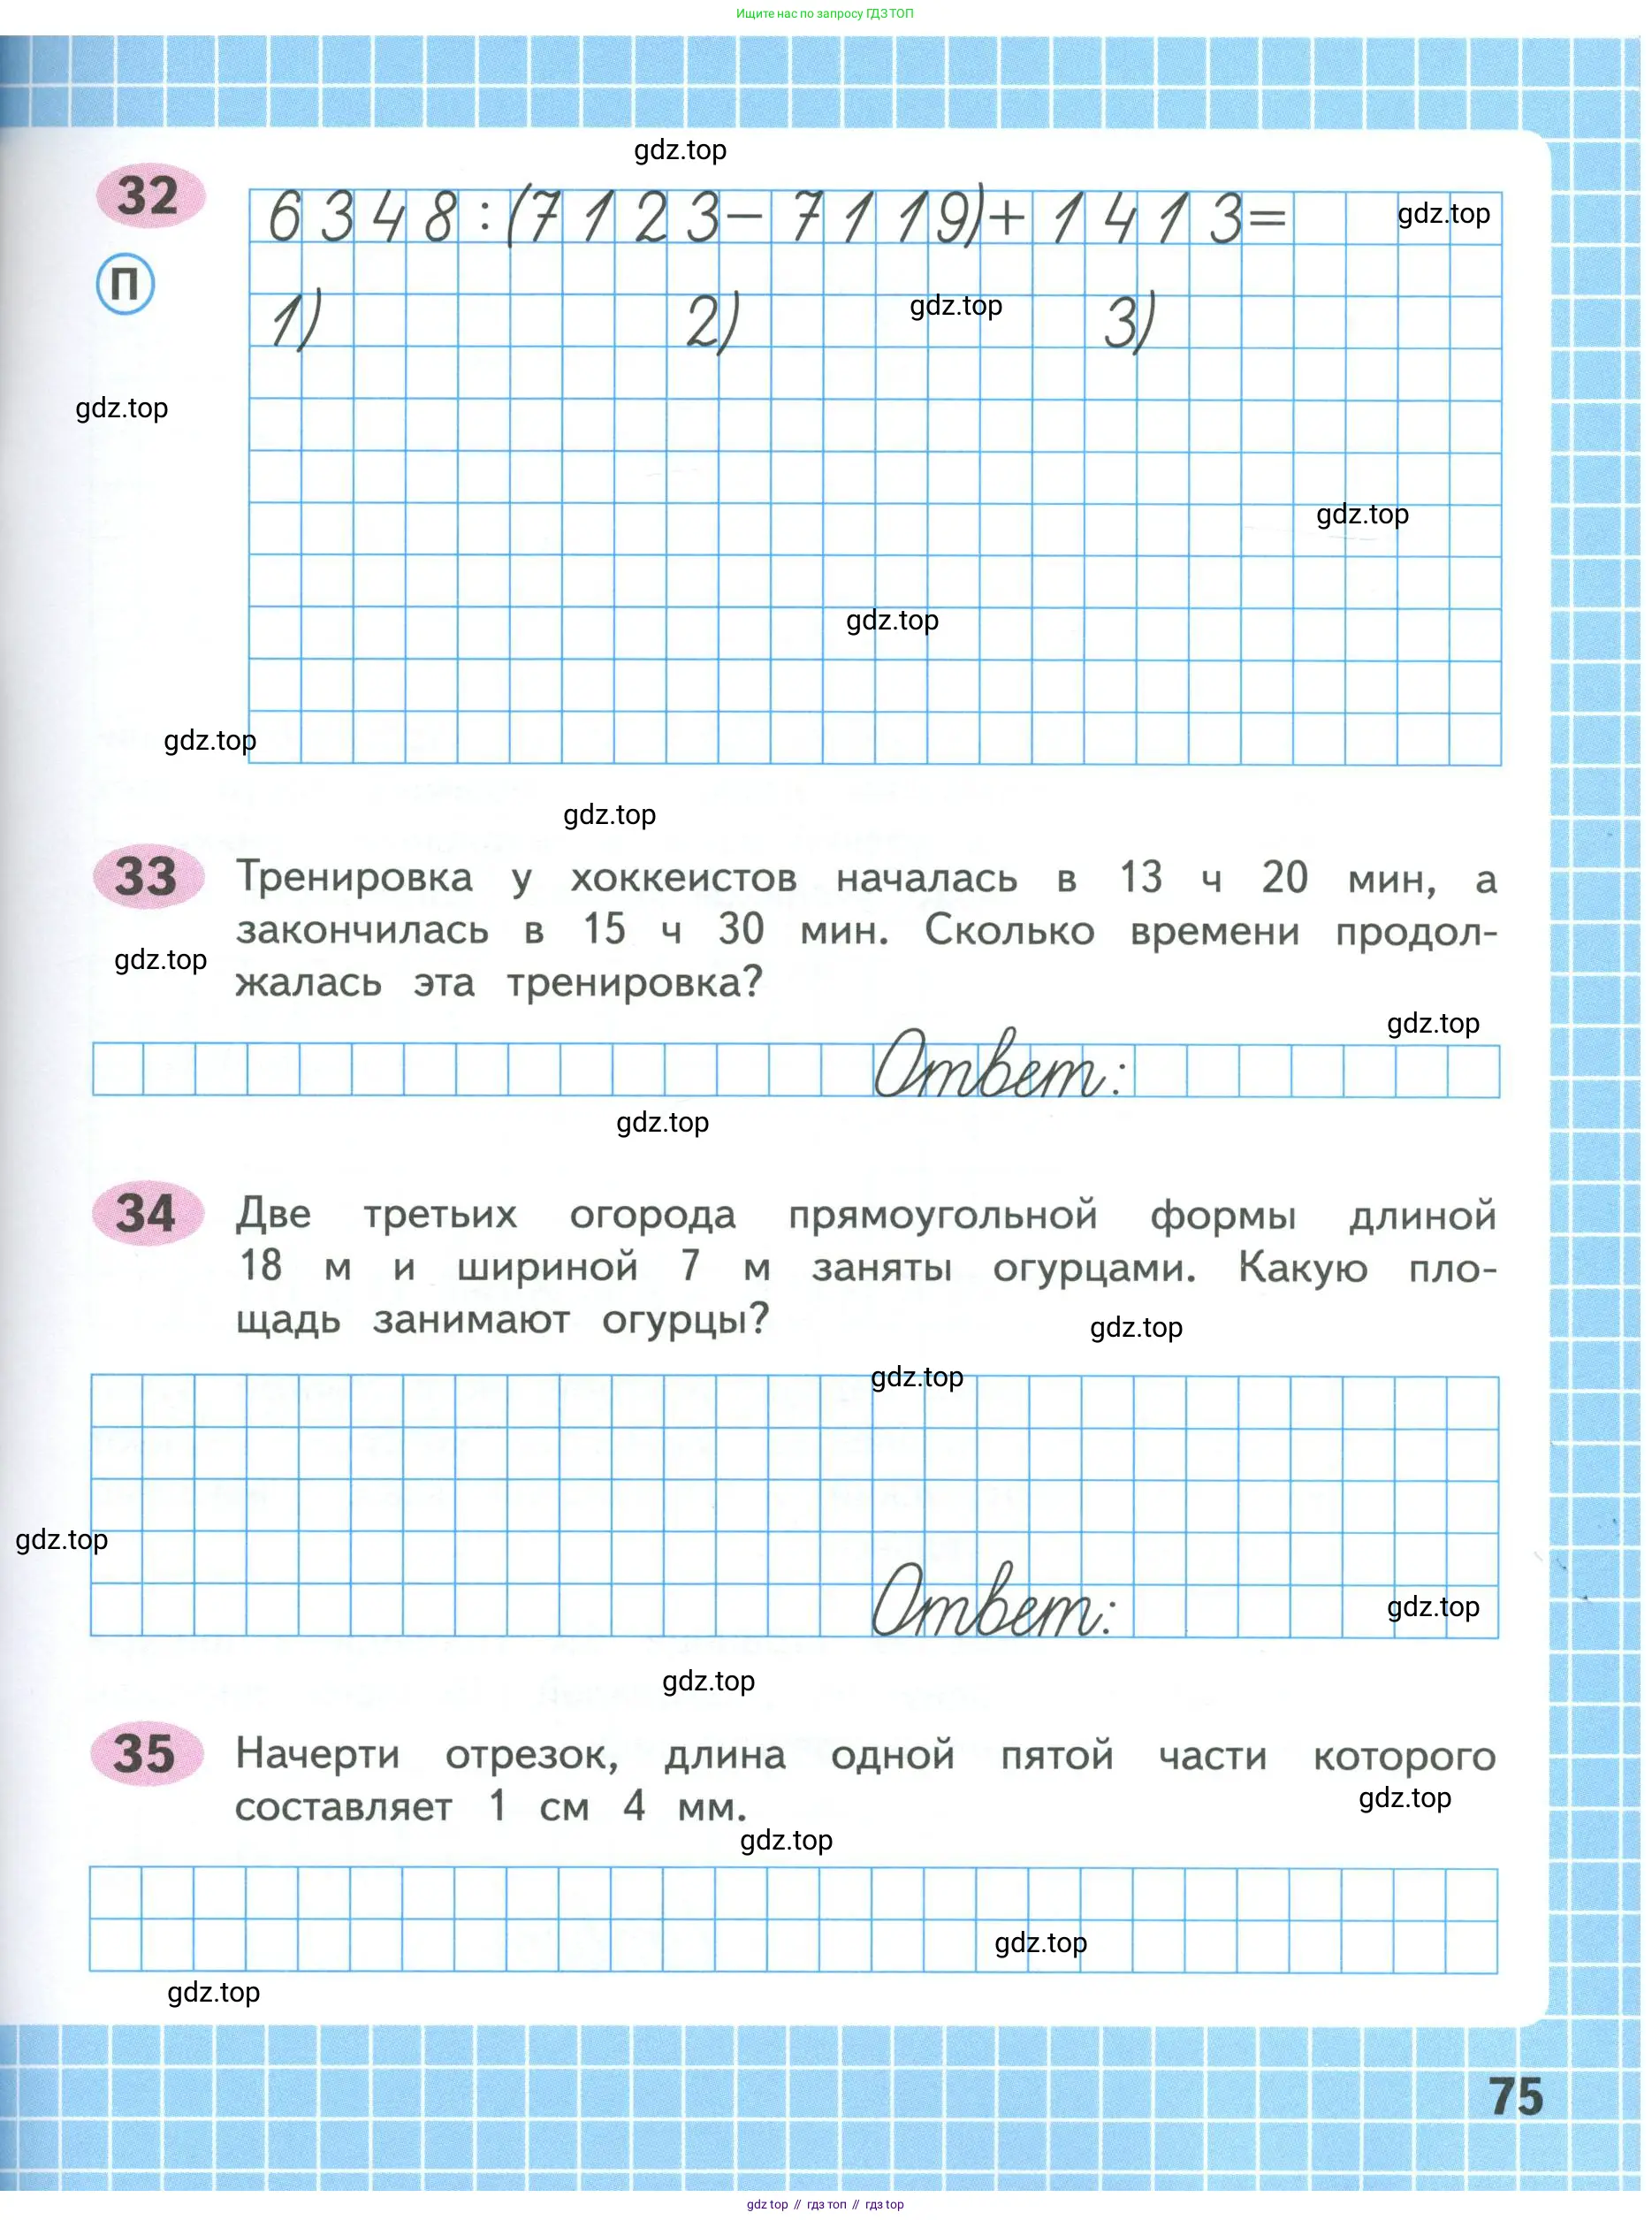 Ищите нас по запросу ГДЗ ТОП
gdz.top
32
6348:(7123-7119)+1413=
gdz.top
П
1) 2) gdz.top 3)
gdz.top
gdz.top
gdz.top
gdz.top
gdz.top
33 Тренировка у хоккеистов началась в 13 ч 20 мин, а
закончилась в 15 ч 30 мин. Сколько времени продол-
gdz.top
жалась эта тренировка?
gdz.top
Ответ:
gdz.top
34 Две третьих огорода прямоугольной формы длиной
18 м и шириной 7 м заняты огурцами. Какую пло-
щадь занимают огурцы?
gdz.top
gdz.top
gdz.top
Ответ:
gdz.top
gdz.top
35 Начерти отрезок, длина одной пятой части которого
составляет 1 см 4 мм.
gdz.top
gdz.top
gdz.top
gdz.top
75
gdz top // гдз топ // гдз top